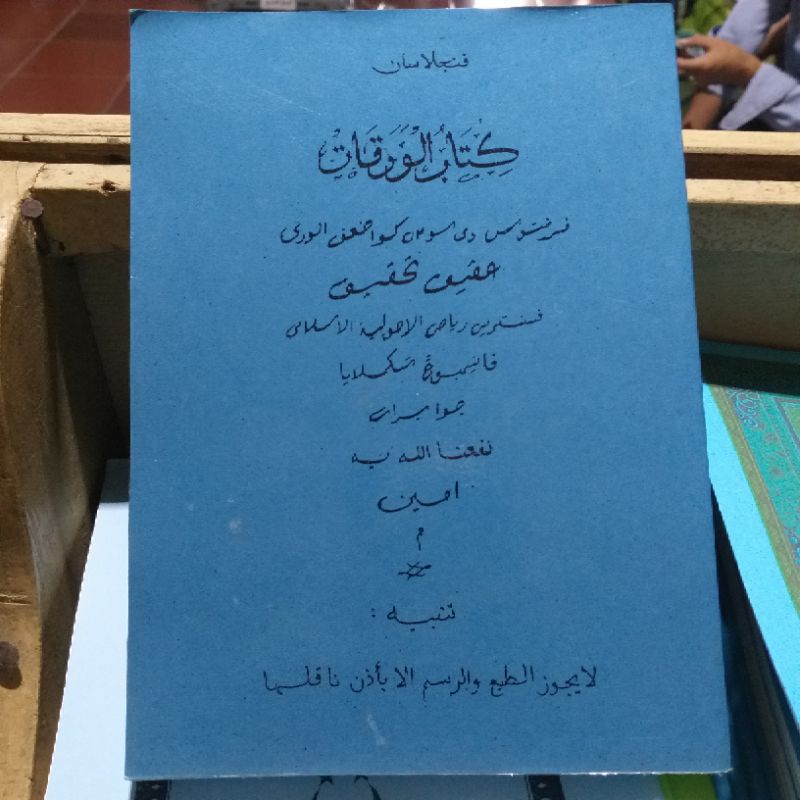 فنجلاسان
كِتَابُ الْوَرَقَاتِ
دى سوسن كو اضعف الورى
عفيف تحقيق
فسنترين رياض الاصولية الاسلامى
تسكملايا
جوا برات
نفعنا الله به
امين
م
تنبيه :
لايجوز الطبع والرسم الا بأذن ناقلها